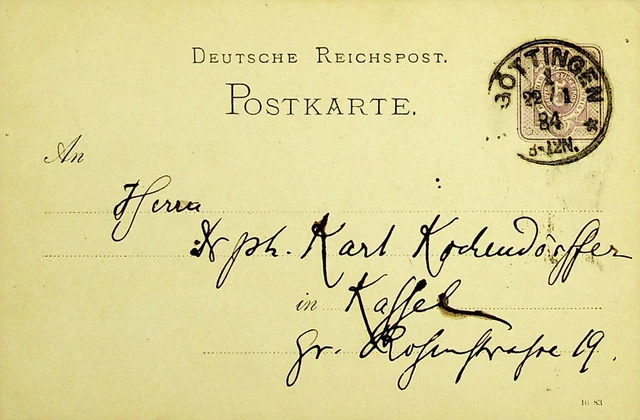 DEUTSCHE REICHSPOST.
POSTKARTE.
GÖTTINGEN
22 1
84
8-12N.
An
Herrn
Dr ph. Karl Kochendörffer
in Kassel
Gr. Rosenstrasse 19.
10 83